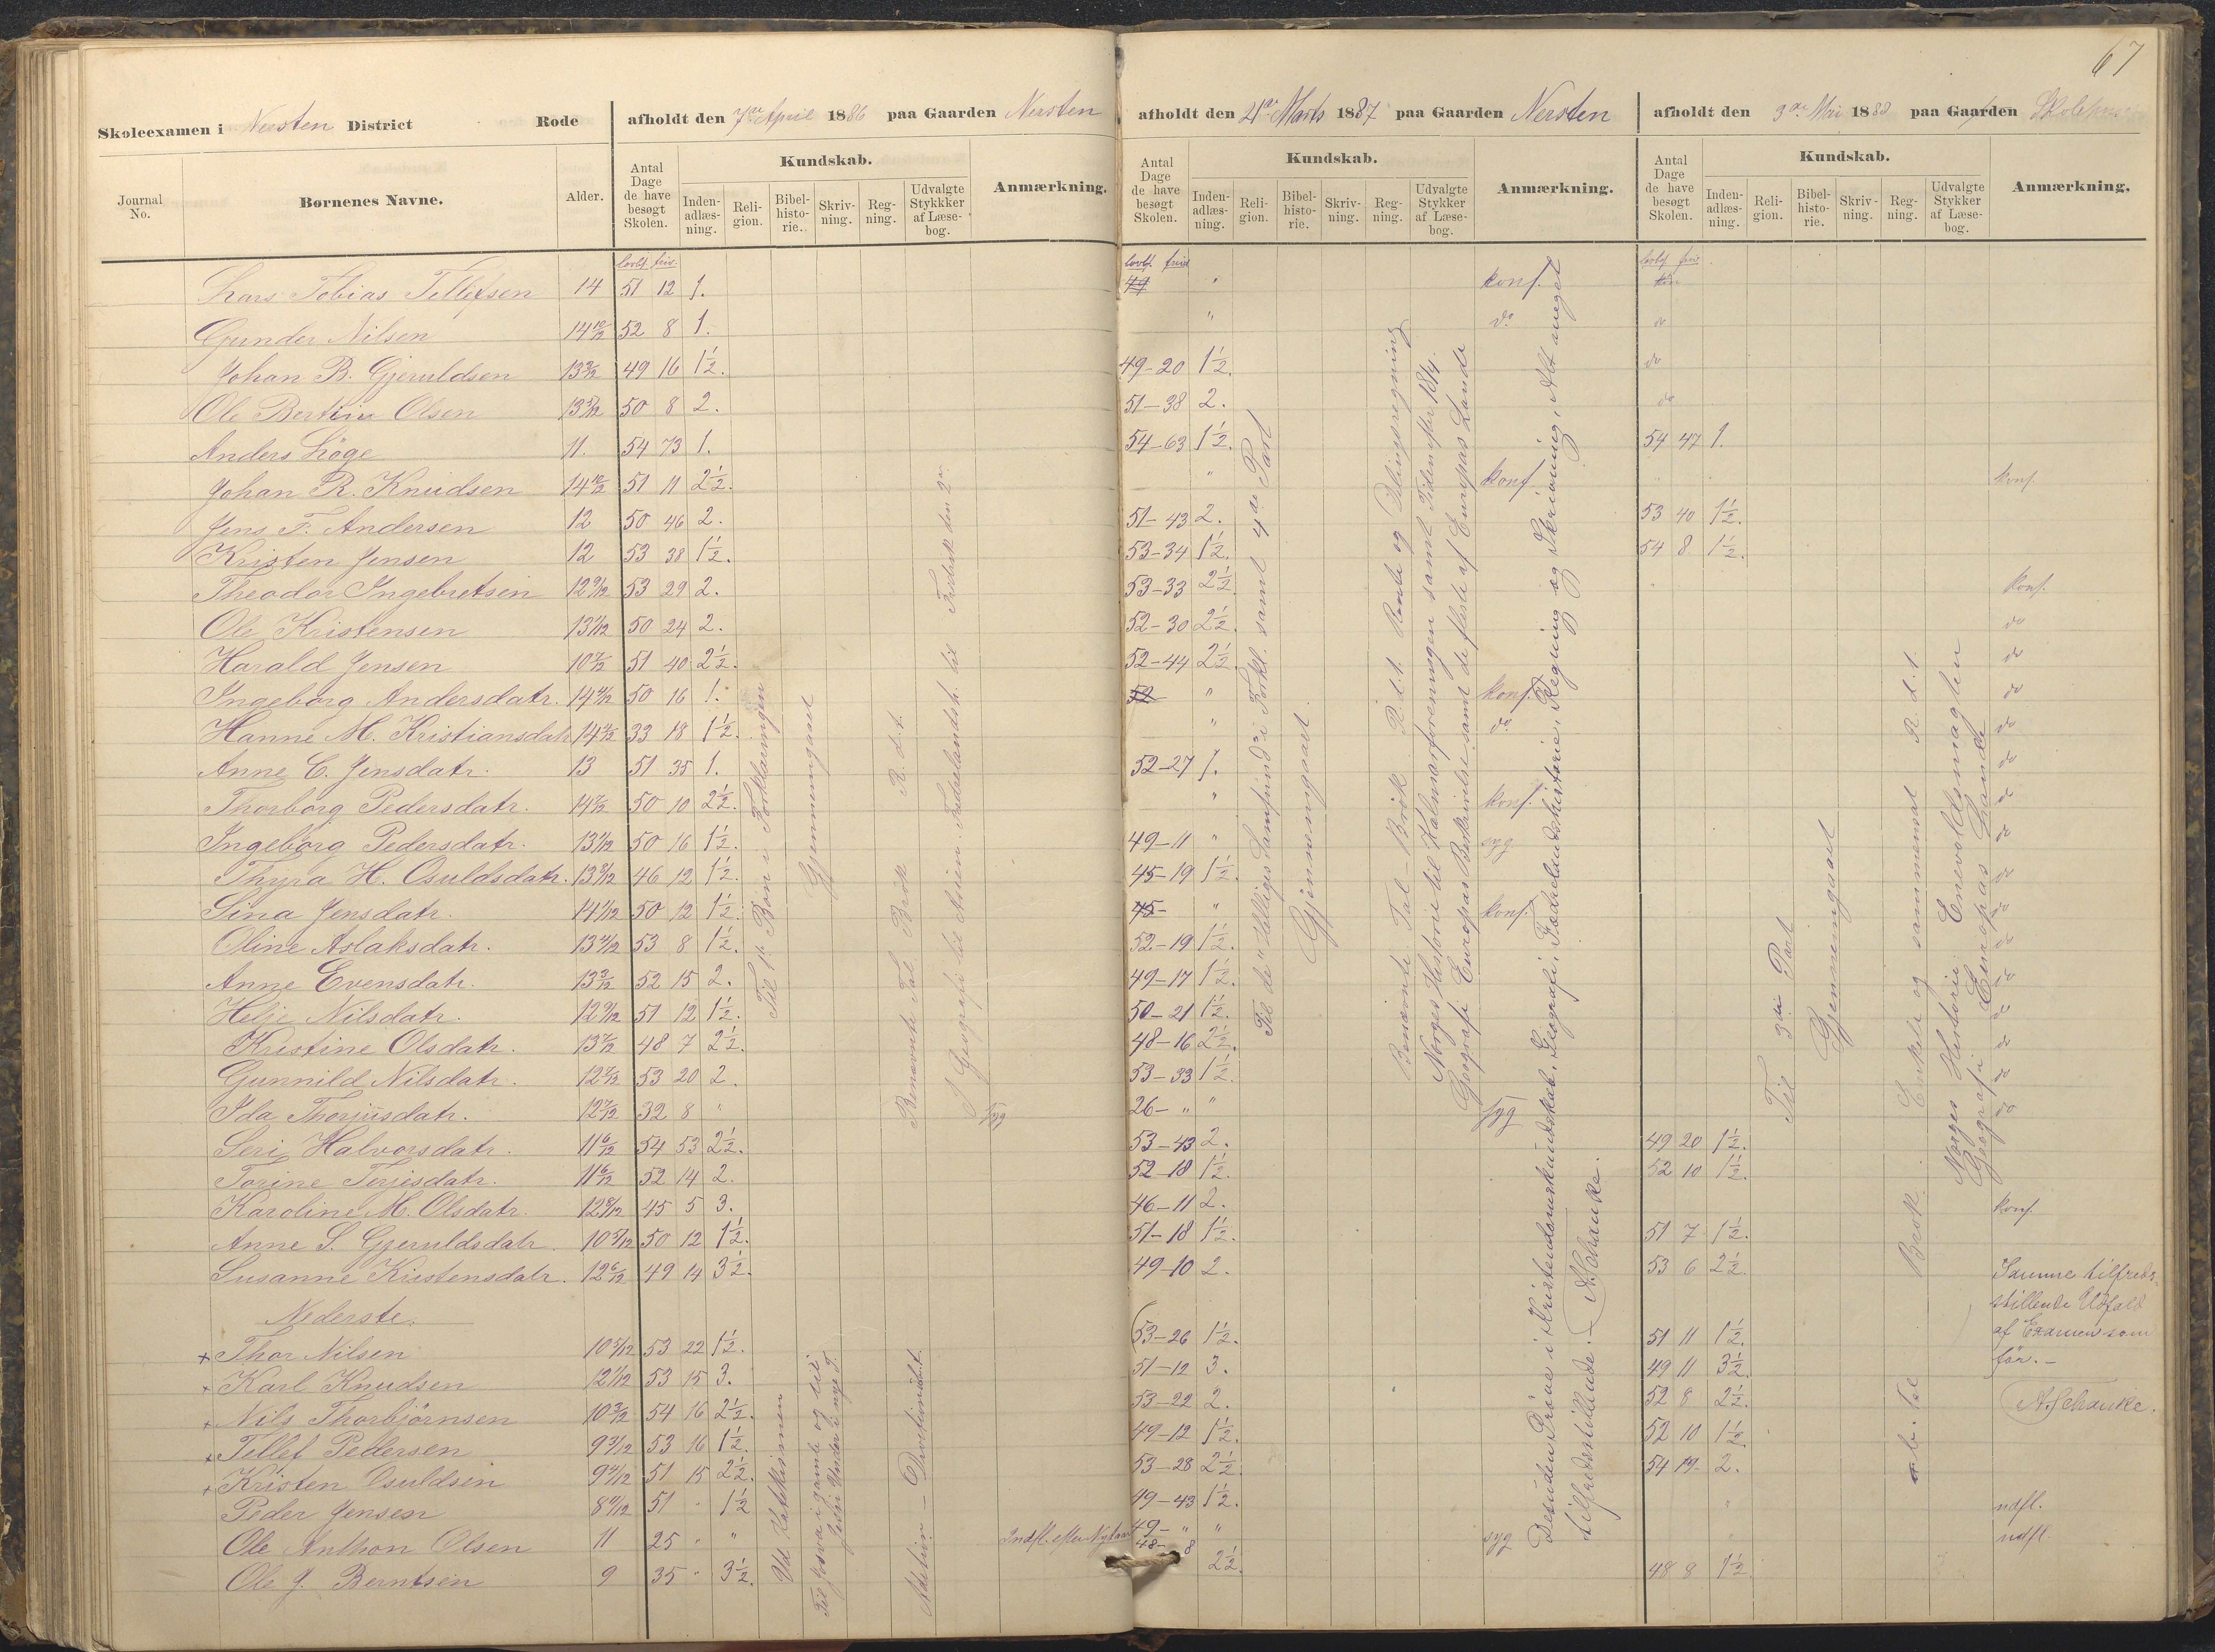 67
Skoleexamen i Nersten District Rode
afholdt den 7de April 1886 paa Gaarden Nersten
afholdt den 21de Marts 1887 paa Gaarden Nersten
afholdt den 3de Mai 1888 paa Gaarden
Journal No. Børnenes Navne. Alder. Antal Dage de have besøgt Skolen. Kundskab. Inden-adlæs-ning. Reli-gion. Bibel-histo-rie. Skriv-ning. Reg-ning. Udvalgte Stykkker af Læse-bog. Anmærkning.
Antal Dage de have besøgt Skolen. Kundskab. Inden-adlæs-ning. Reli-gion. Bibel-histo-rie. Skriv-ning. Reg-ning. Udvalgte Stykker af Læse-bog. Anmærkning.
Antal Dage de have besøgt Skolen. Kundskab. Inden-adlæs-ning. Reli-gion. Bibel-histo-rie. Skriv-ning. Reg-ning. Udvalgte Stykker af Læse-bog. Anmærkning.
lovbf. friv. lovbf. friv. lovbf. friv.
Lars Tobias Tellefsen 14 51 12 1. 49 " konf. kon
Gunder Nilsen 14 10/12 52 8 1. " do do
Johan B. Gjeruldsen 13 3/12 49 16 1½. 49-20 1½. do
Ole Bertin Olsen 13 5/12 50 8 2. 51-38 2. do
Anders Löge 11. 54 73 1. 54-63 1½. 54 47 1.
Johan R. Knudsen 14 10/12 51 11 2½. " konf konf.
Jens F. Andersen 12 50 46 2. 51-43 2. 53 40 1½.
Kristen Jensen 12 53 38 1½. 53-34 1½. 54 8 1½.
Theodor Ingebretsen 12 9/12 53 29 2. 53-33 2½. konf.
Ole Kristensen 13 1/12 50 24 2. 52-30 2½. do
Harald Jensen 10 7/12 51 40 2½. 52-44 2½. do
Ingeborg Andersdatr. 14 4/12 50 16 1. 52 " konf. do
Hanne M. Kristiansdatr 14 4/12 33 18 1½. " do do
Anne C. Jensdatr. 13 51 35 1. 52-27 1. do
Thorborg Pedersdatr. 14 7/12 50 10 2½. " konf. do
Ingeborg Pedersdatr. 13 1/12 50 16 1½. 49-11 " syg do
Thyra H. Osuldsdatr. 13 8/12 46 12 1½. 45-19 1½. do
Sina Jensdatr. 14 1/12 50 12 1½. 45- " konf. do
Oline Aslaksdatr. 13 4/12 53 8 1½. 52-19 1½. do
Anne Evensdatr. 13 3/12 52 15 2. 49-17 1½. do
Helje Nilsdatr. 12 9/12 51 12 1½. 50-21 1½. do
Kristine Olsdatr. 13 7/12 48 7 2½. 48-16 2½. do
Gunnild Nilsdatr. 12 7/12 53 20 2. 53-33 1½. do
Ida Thorjusdatr. 12 7/12 32 8 " syg 26- " " syg do
Seri Halvorsdatr. 11 6/12 54 53 2½. 53-43 2. 49 20 1½.
Torine Terjesdatr. 11 6/12 52 14 2. 52-18 1½. 52 10 1½.
Karoline M. Olsdatr. 12 8/12 45 5 3. 46-11 2. konf.
Anne S. Gjeruldsdatr. 10 5/12 50 12 1½. 51-18 1½. 51 7 1½.
Susanne Kristensdatr. 12 6/12 49 14 3½. 49-10 2. 53 6 2½.
Nederste.
x Thor Nilsen 10 5/12 53 22 1½. 53-26 1½. 51 11 1½.
x Karl Knudsen 12 1/12 53 15 3. 51-12 3. 49 11 3½.
x Nils Thorbjörnsen 10 3/12 54 16 2½. 53-22 2. 52 8 2½.
x Tellef Pedersen 9 3/12 53 16 1½. 49-12 1½. 52 10 1½.
x Kristen Osuldsen 9 4/12 51 15 2½. 53-28 2½. 54 19 2.
Peder Jensen 8 9/12 51 " 1½ 49-43 1½. " udfl.
Ole Anthon Olsen 11 25 " " Indfl. efter Nytaar 49- " " syg udfl.
Ole J. Berntsen 9 35 " 3½. 48- 8 2½. 48 8 1½
Til 1ste Bön i Forklaringen
Gjennemgaaet
Benævnte Tal Brök R. d. t.
I Geografi til Asien. Fædrelandsh. til Frederik den 2den
Ud Katekismen
Addition - Division
Til de "Helliges Samfund" i Forkl. samt 4de Part
Gjennemgaaet.
Benævnte Tal - Brök R. d. t. Rente og Delingsregning
Norges Historie til Kalmarforeningen samt Tiden efter 1814.
Geografi Europas Beskrivelse samt de fleste af Europas Lande
Desuden Pröve i Kristendomskundskab, Geografi, Fædrelandshistorie, Regning og Skrivning. Alt meget
tilfredsstillende. A. Schanke.
Til 3die Part
Gjennemgaaet
Brök. Enkle og sammensat R. d. t.
Norges Historie: Enevoldsmagten
Geografi Europas Lande
Samme tilfreds-
stillende Udfald
af Examen som
för.-
A. Schanke.